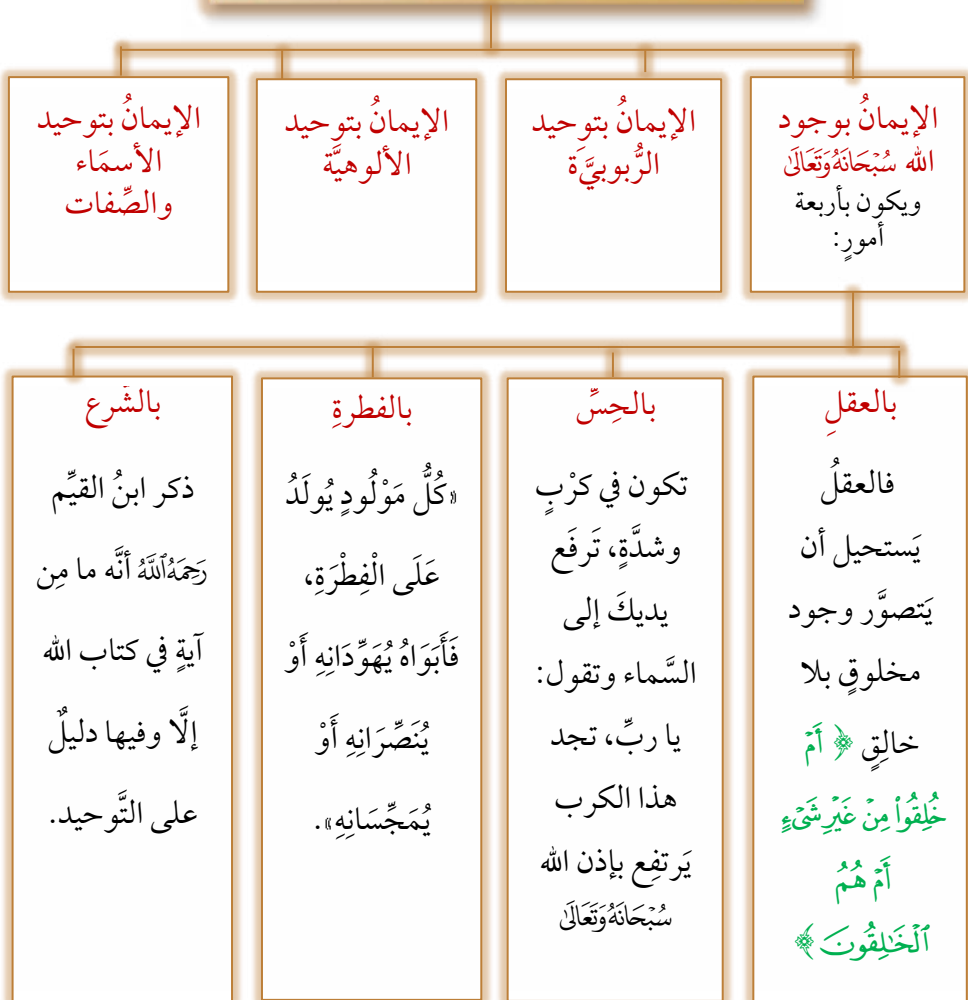 الإيمانُ بوجود
الله سُبْحَانَهُ وَتَعَالَىٰ
ويكون بأربعة
أمورٍ:
الإيمانُ بتوحيد
الرُّبوبيَّة
الإيمانُ بتوحيد
الألوهيَّة
الإيمانُ بتوحيد
الأسمَاء
والصِّفات
بالعقلِ
فالعقلُ
يَستحيل أن
يَتصوَّر وجود
مخلوقٍ بلا
خالِقٍ ﴿ أَمۡ
خُلِقُواْ مِنۡ غَيۡرِ شَيۡءٍ
أَمۡ هُمُ
ٱلۡخَٰلِقُونَ ﴾
بالحِسِّ
تكون في كرْبٍ
وشدَّةٍ، تَرفَع
يديكَ إلى
السَّماء وتقول:
يا ربِّ، تجد
هذا الكرب
يَرتفِع بإذن الله
سُبْحَانَهُ وَتَعَالَىٰ
بالفطرةِ
«كُلُّ مَوْلُودٍ يُولَدُ
عَلَى الْفِطْرَةِ،
فَأَبَوَاهُ يُهَوِّدَانِهِ أَوْ
يُنَصِّرَانِهِ أَوْ
يُمَجِّسَانِهِ».
بالشَّرع
ذكر ابنُ القيِّم
رَحِمَهُ ٱللَّهُ أنَّه ما مِن
آيةٍ في كتاب الله
إلَّا وفيها دليلٌ
على التَّوحيد.